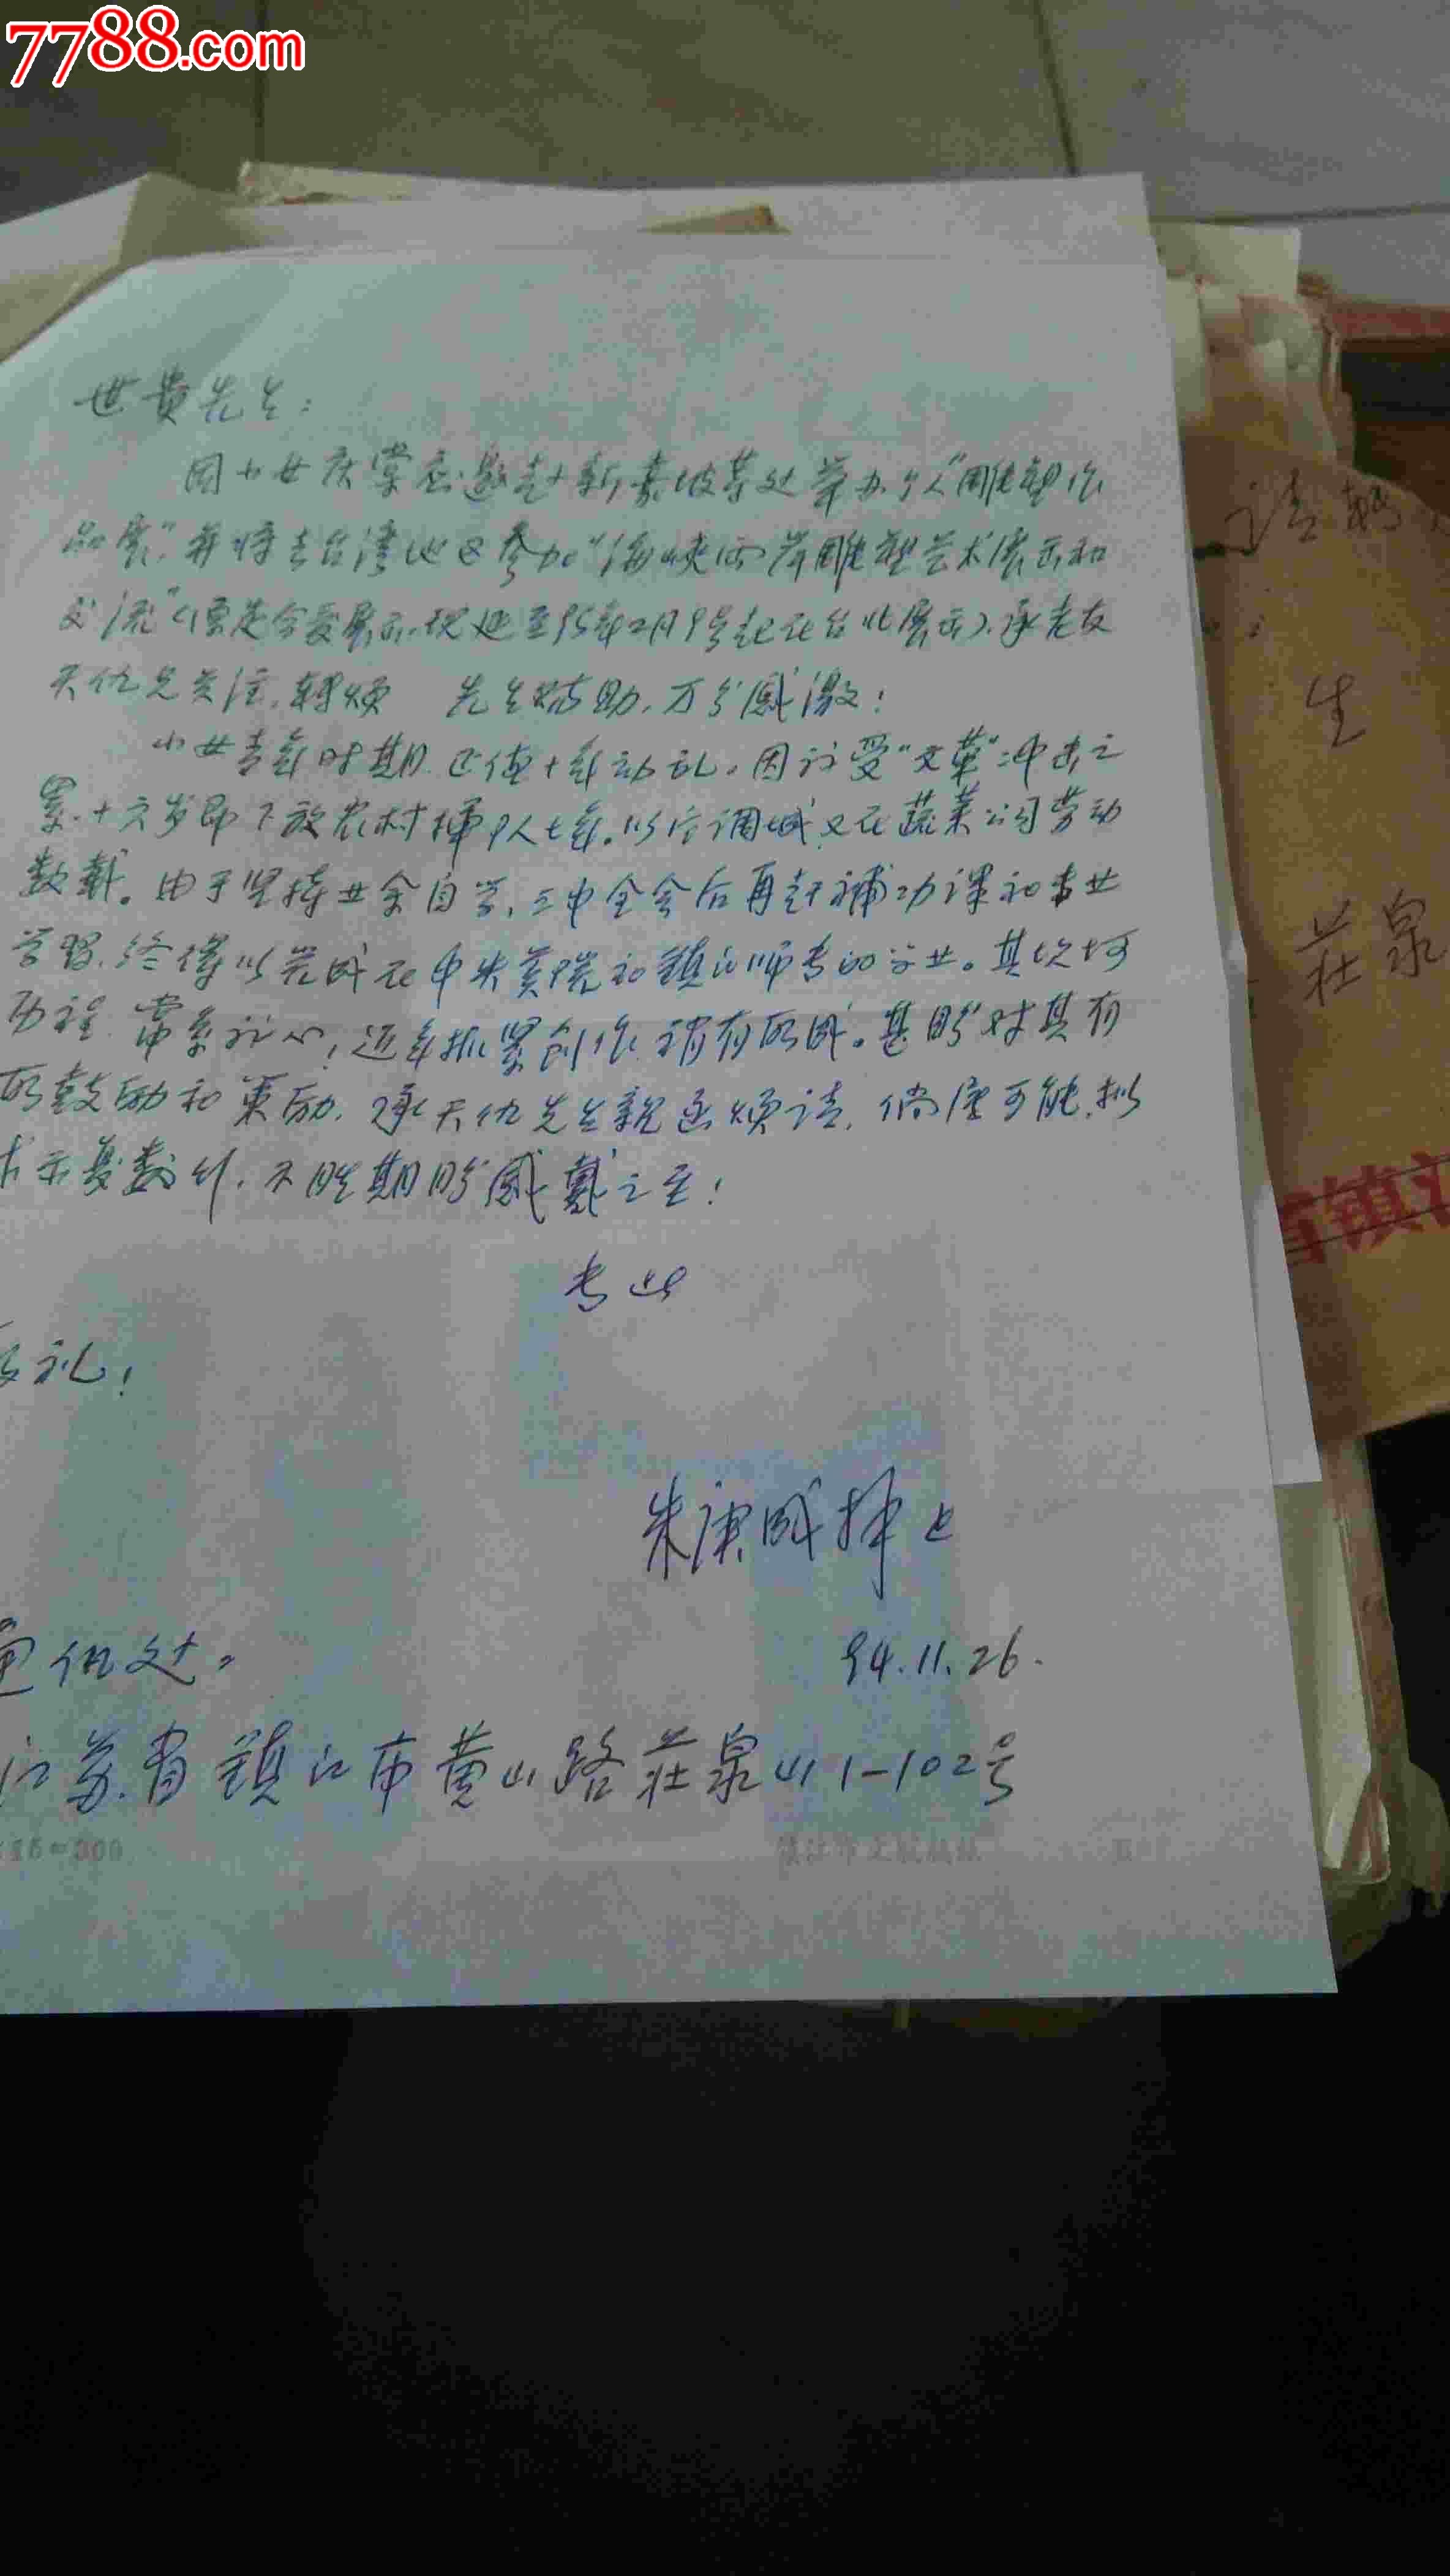 7788.com
世贵先生:
因小女庆棠应邀赴新嘉坡等处举办个人“雕塑作
品展”,并将去台湾地区参加“海峡两岸雕塑艺术展示和
交流”(原定今夏展示,现延至95年2月9号起在台北展示),承老友
天仇兄关注,转烦 先生赞助,万分感激!
小女青年时期,正值十年动乱,因我受“文革”冲击之
累,十六岁即下放农村插队七年。以后调城,又在蔬菜公司劳动
数载。由于坚持业余自学,三中全会后再赶补功课和专业
学习,终得以完成在中央美院和镇江师专的学业。其坎坷
历程,常系于心,近年抓紧创作,稍有所成。甚盼对其有
所鼓励和策励,承天仇先生亲函烦请,倘虑可能,拟
求示复数行,不胜期盼感戴之至!
专此
礼!
朱庚成拜上
94.11.26.
通讯处:
江苏省镇江市黄山路莊泉山1-102号
15=300
请转
生
莊泉
省镇江